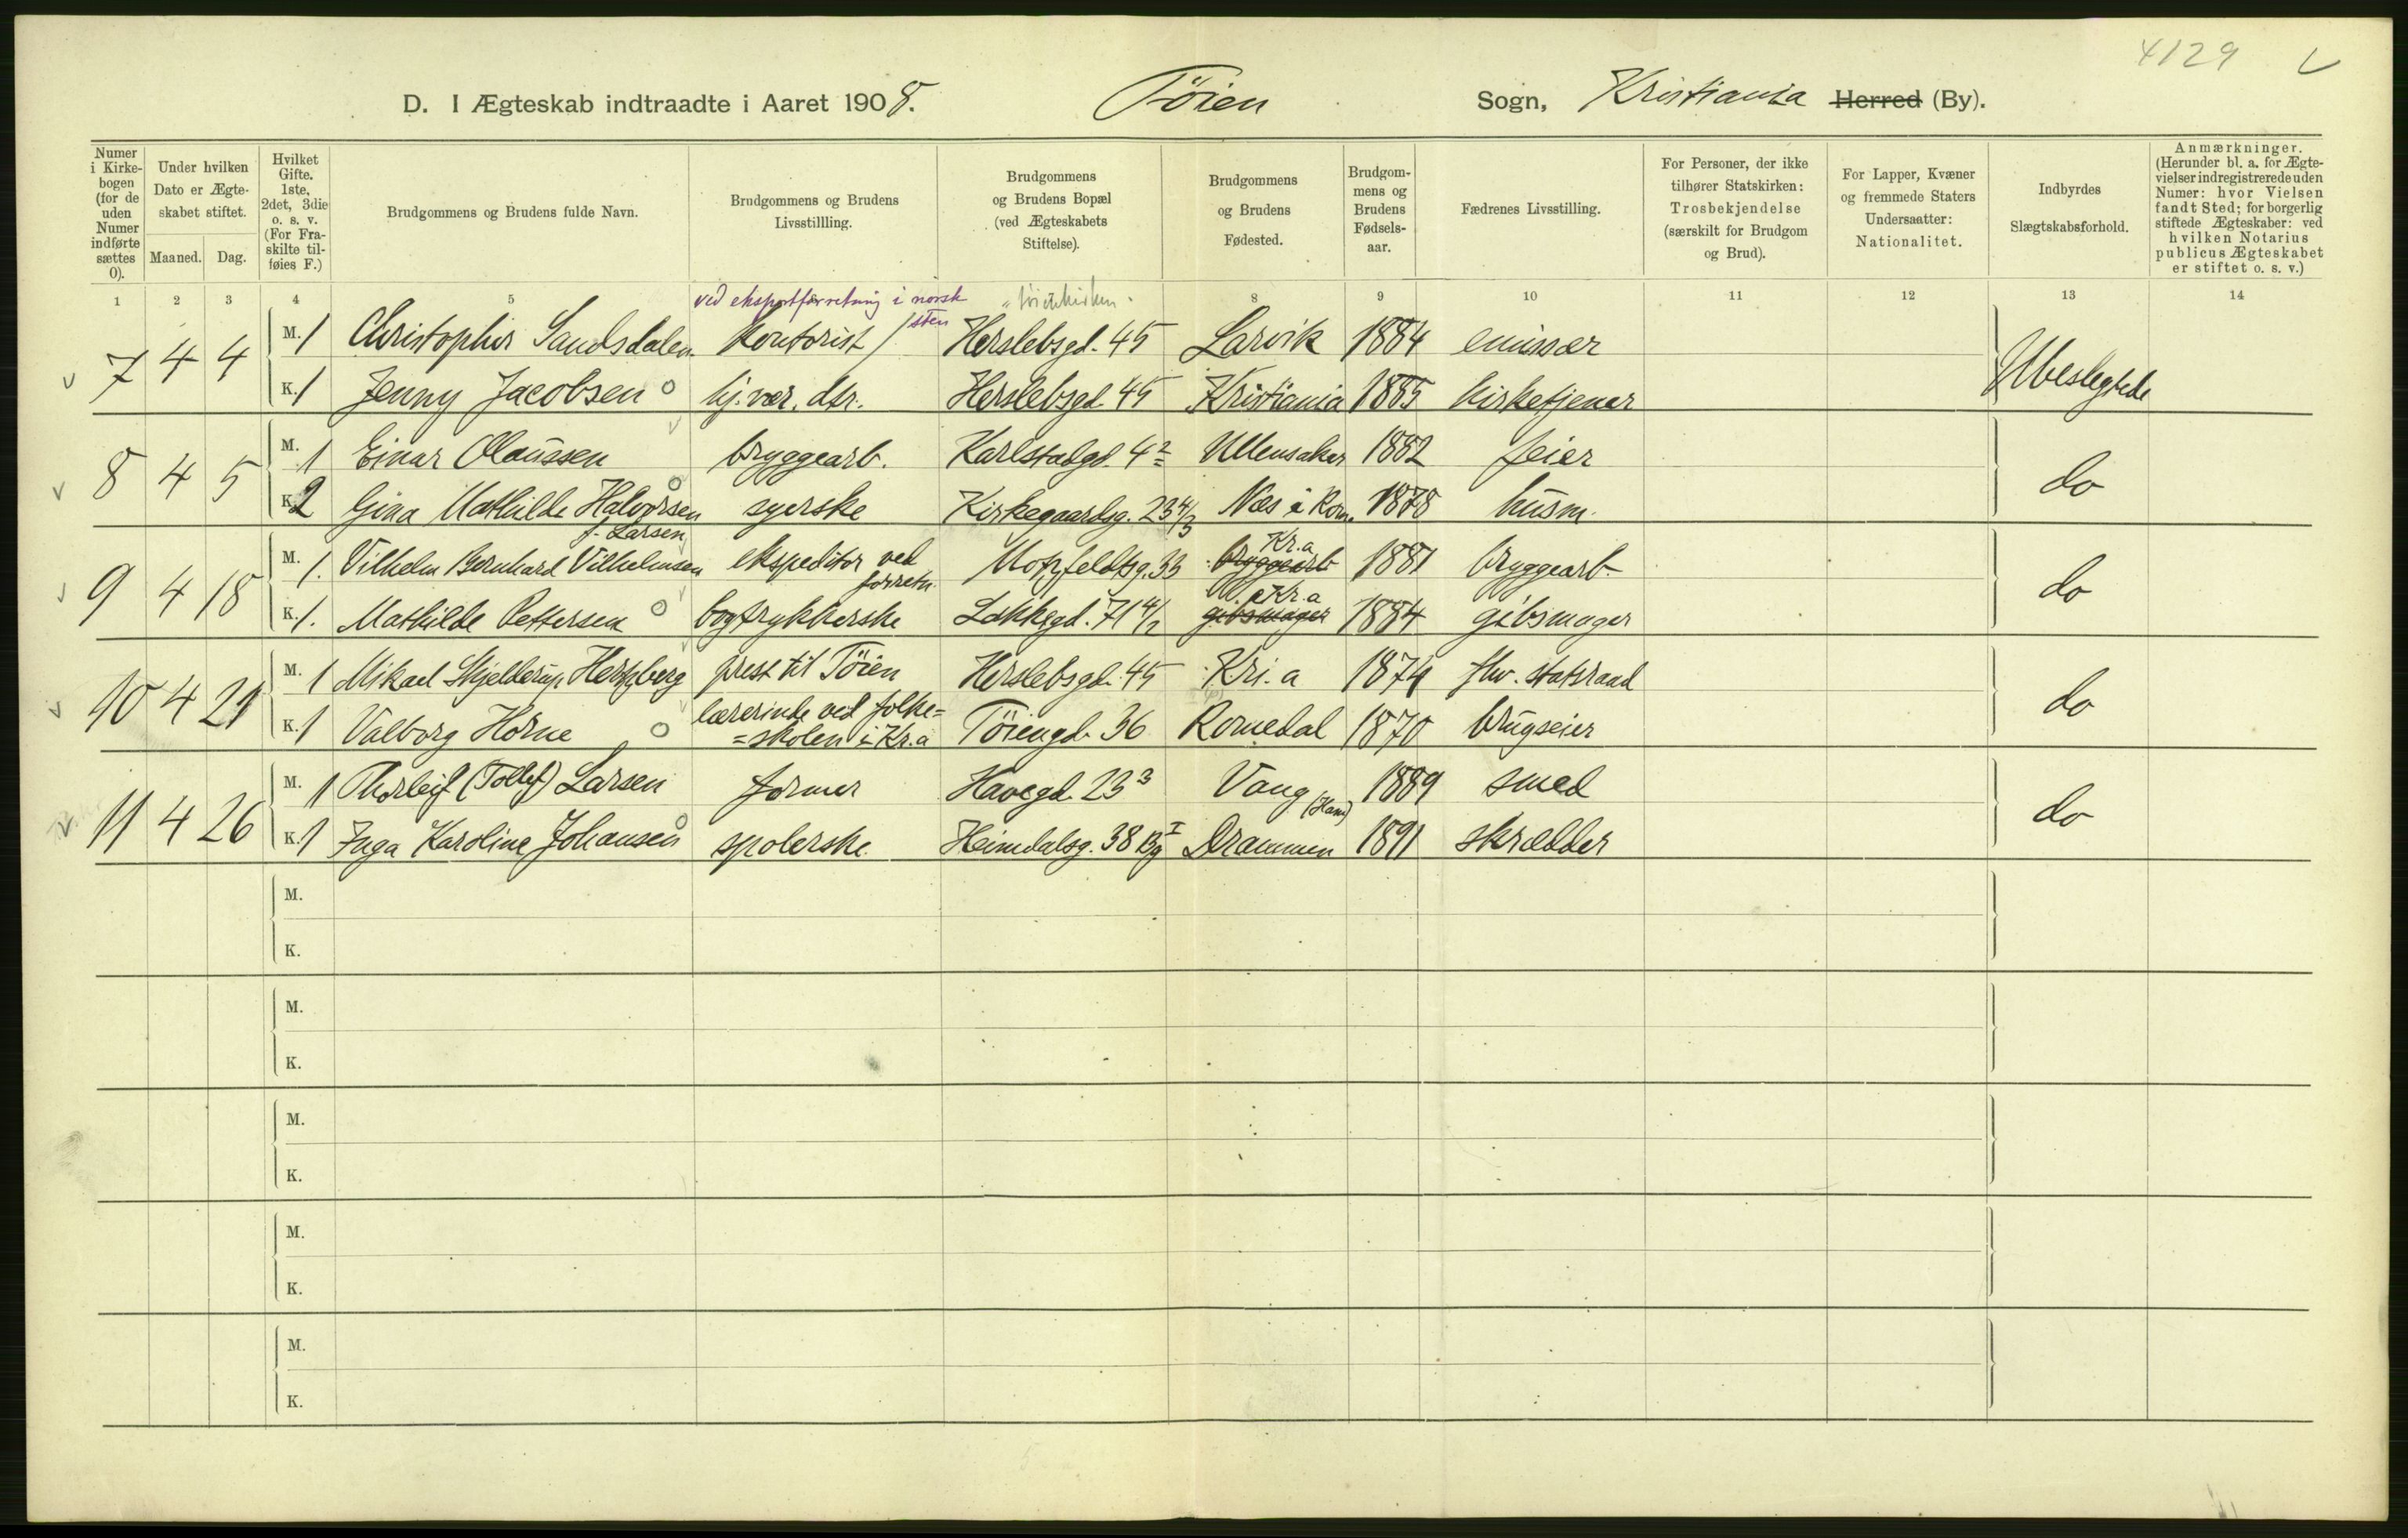 4129
D. I Ægteskab indtraadte i Aaret 1908. Töien Sogn, Kristiania Herred (By).
Numer i Kirkebogen (for de uden Numer indførte sættes 0).
Under hvilken Dato er Ægteskabet stiftet.
Maaned. Dag.
Hvilket Gifte. 1ste, 2det, 3die o. s. v. (For Fraskilte tilføies F.)
Brudgommens og Brudens fulde Navn.
Brudgommens og Brudens Livsstillling.
Brudgommens og Brudens Bopæl (ved Ægteskabets Stiftelse).
Brudgommens og Brudens Fødested.
Brudgommens og Brudens Fødselsaar.
Fædrenes Livsstilling.
For Personer, der ikke tilhører Statskirken: Trosbekjendelse (særskilt for Brudgom og Brud).
For Lapper, Kvæner og fremmede Staters Undersaatter: Nationalitet.
Indbyrdes Slægtskabsforhold.
Anmærkninger. (Herunder bl. a. for Ægtevielser indregistrerede uden Numer: hvor Vielsen fandt Sted; for borgerlig stiftede Ægteskaber: ved hvilken Notarius publicus Ægteskabet er stiftet o. s. v.)
1 2 3 4 5 8 9 10 11 12 13 14
ved eksportforretning i norsk sten
7 4 4 M. 1 Christopher Sandsdalen kontorist Herslebsgd. 45 Larvik 1884 emissær Ubeslegtede
K. 1 Jenny Jacobsen hj. vær. dtr. Herslebsgd. 45 Kristiania 1885 kirketjener
8 4 5 M. 1 Einar Olaussen bryggearb. Karlstadgd. 4 2 Ullensaker 1882 feier do
K. 2 Gina Mathilde Halvorsen syerske Kirkegaardsg. 23 4/3 Næs i Rom. 1878 husm.
f. Larsen
9 4 18 M. 1. Vilhelm Bernhard Vilhelmsen ekspeditør ved forretn. Motzfeldtsg. 33 bryggearb Kr.a 1881 bryggearb. do
K. 1. Mathilde Pettersen bogtrykkerske Lakkegd. 71 4/2 gibsmager Kr.a 1884 gibsmager
10 4 21 M. 1 Mikael Skjelderup Hertzberg prest til Töien Herslebsgd. 45 Kri.a 1874 fhv. statsraad do
K. 1 Valborg Horne lærerinde ved folke= =skolen i Kr.a Töiengd. 36 Romedal 1870 brugseier
11 4 26 M. 1 Thorleif (Tollef) Larsen former Havegd. 23 3 Vang (Ham) 1889 smed do
K. 1 Inga Karoline Johansen spolerske Heimdalsg. 38 Bg I Drammen 1891 skrædder
M.
K.
M.
K.
M.
K.
M.
K.
M.
K.